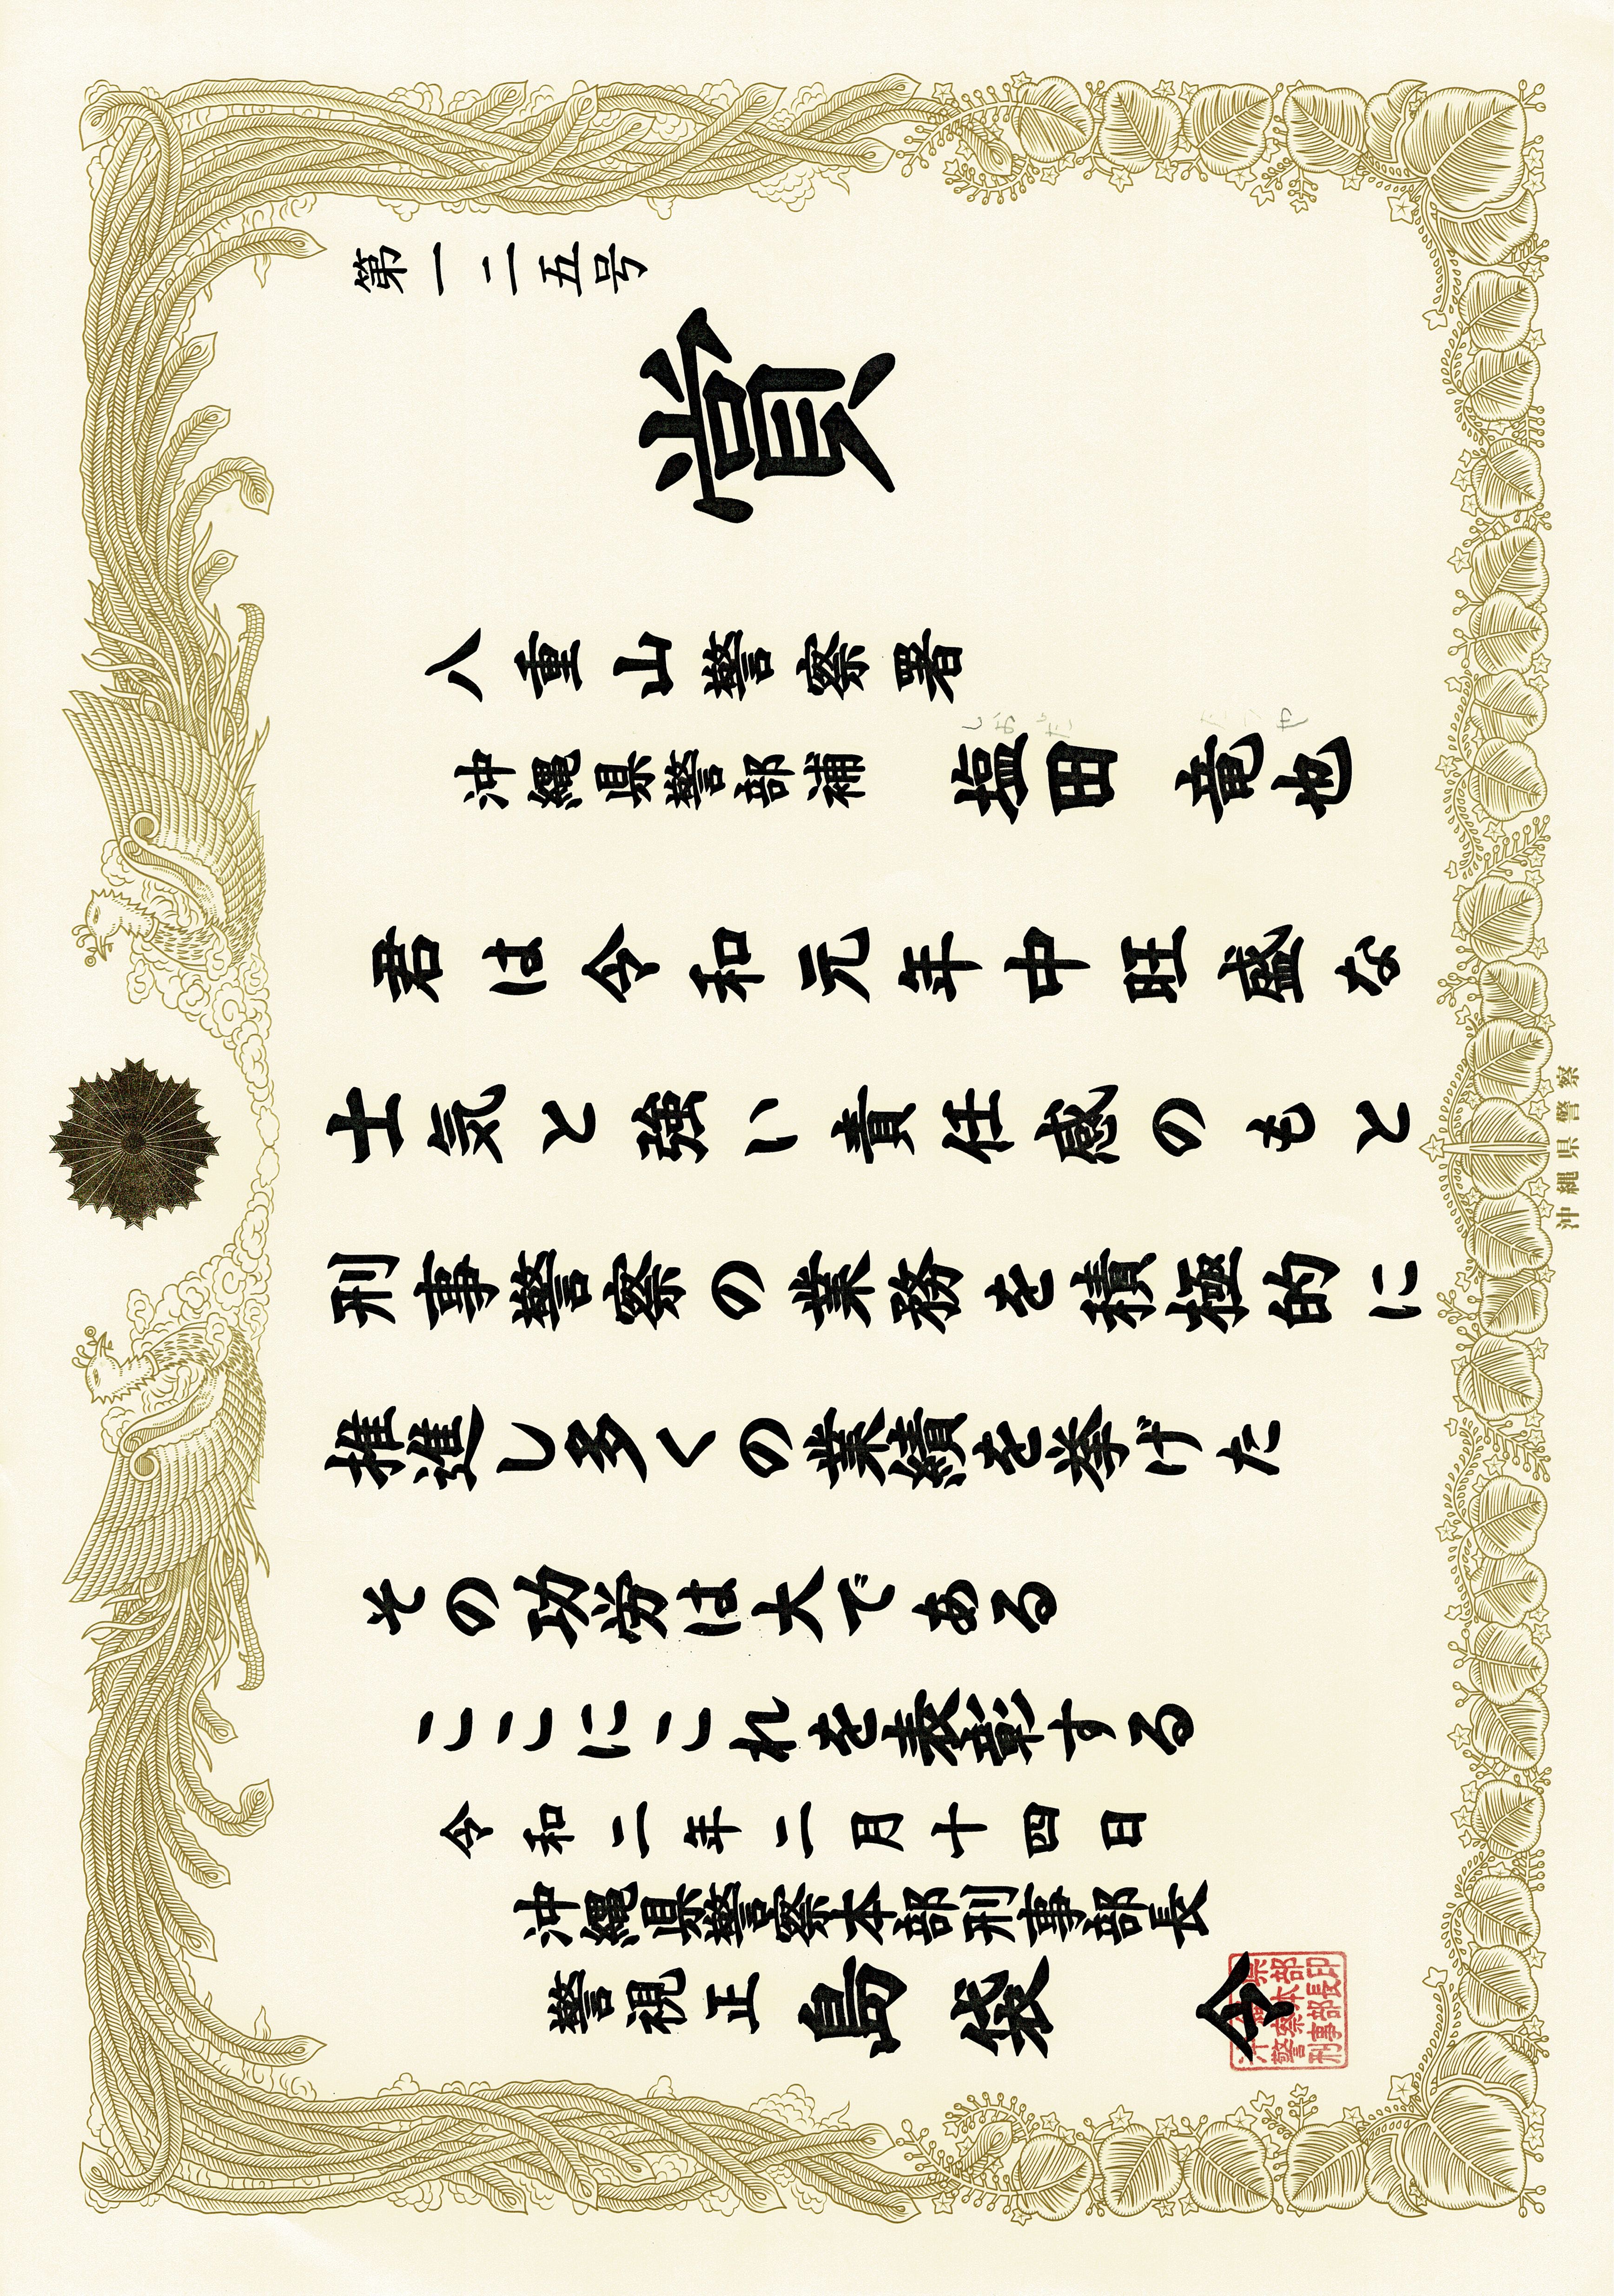 第一二五号
賞
八重山警察署
沖縄県警部補 塩田 竜也
君は令和元年中旺盛な
士気と強い責任感のもと
刑事警察の業務を積極的に
推進し多くの業績を挙げた
その功労は大である
ここにこれを表彰する
令和二年二月十四日
沖縄県警察本部刑事部長
警視正 島袋 令
沖縄県警察